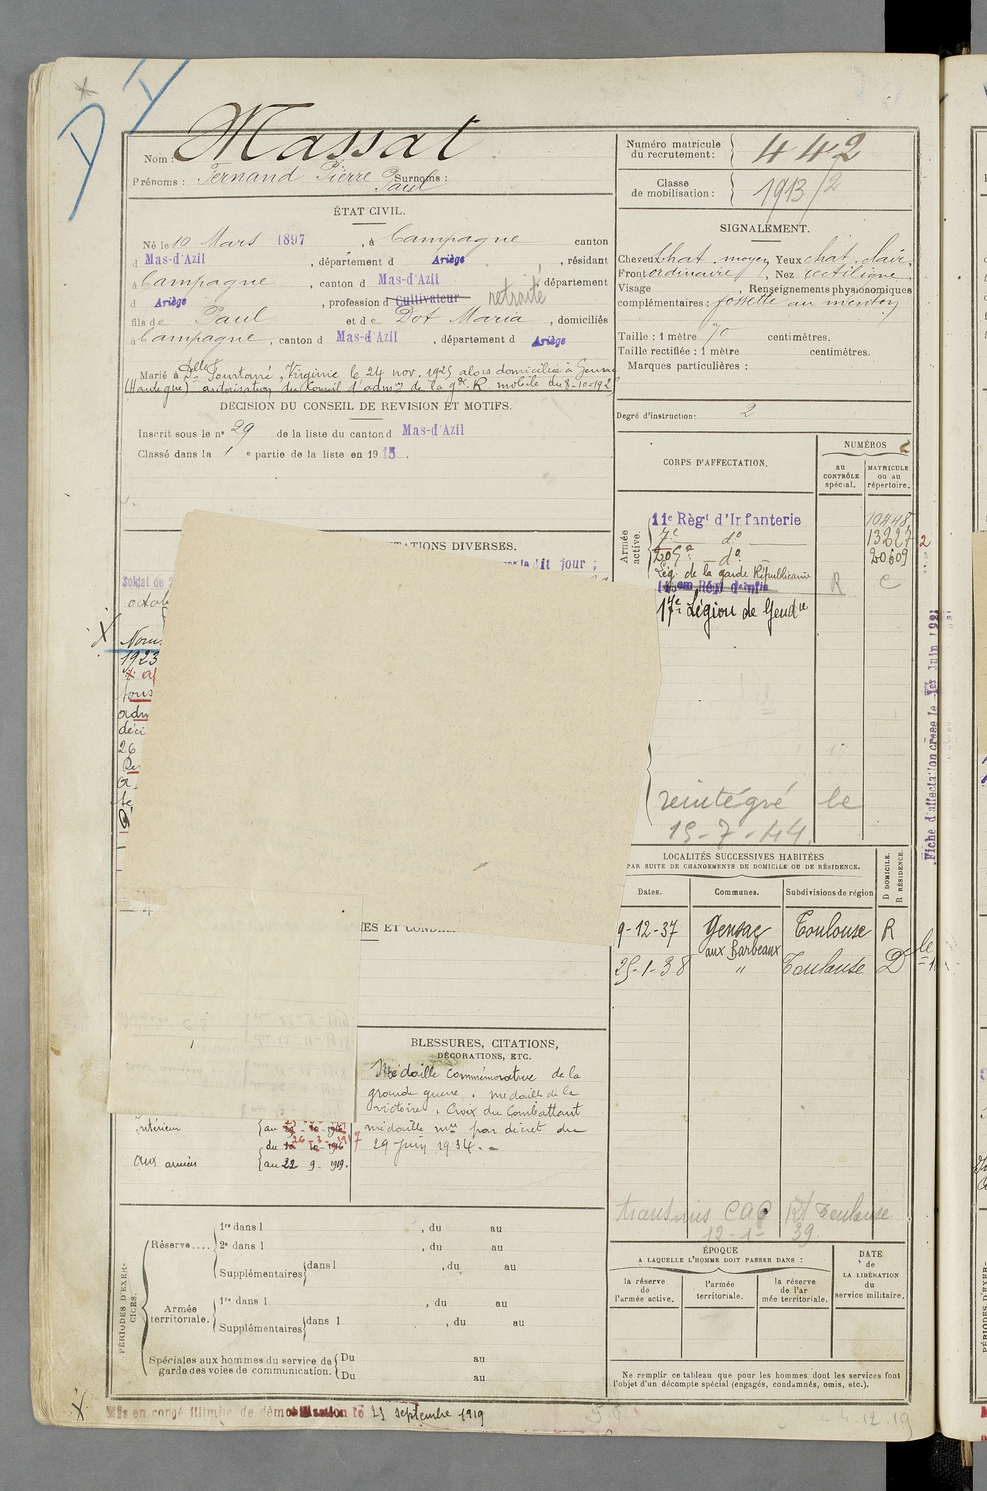 Nom : Massat
Prénoms : Fernand Pierre Paul Surnoms :
ÉTAT CIVIL.
Né le 10 Mars 1897, à Campagne canton
d Mas-d'Azil, département d Ariège, résidant
à Campagne, canton d Mas-d'Azil département
d Ariège, profession d Cultivateur retraité
fils de Paul et de Dot Maria, domiciliés
à Campagne, canton d Mas-d'Azil, département d Ariège
Marié à Delle Fourtané, Virginie le 24 nov. 1925 alors domiciliée à
autorisation du Conseil d'admon de la gde R. mobile du 8-10-1925
DÉCISION DU CONSEIL DE REVISION ET MOTIFS.
Inscrit sous le n° 29 de la liste du canton d Mas-d'Azil
Classé dans la 1e partie de la liste en 1915.
TATIONS DIVERSES.
dit jour ;
Soldat de 2
octob
Nom
1923
tous
adm
déci
26
ES ET
BLESSURES, CITATIONS,
DÉCORATIONS, ETC.
Médaille Commémorative de la
grande guerre. médaille de la
victoire. Croix du Combattant
médaille mre par décret du
29 Juin 1934. -
intérieur
aux armées
au 22 9 - 1919.
PÉRIODES D'EXERCICES.
Réserve....
1re dans l , du au
2e dans l , du au
Supplémentaires dans l , du au
Armée territoriale.
1re dans l , du au
Supplémentaires dans l , du au
Spéciales aux hommes du service de garde des voies de communication.
Du au
Du au
Mis en congé illimité de démobilisation le 23 septembre 1919
Numéro matricule du recrutement : 442
Classe de mobilisation : 1913/2
SIGNALEMENT.
Cheveux chat. moyen Yeux chat. clair,
Front ordinaire, Nez rectiligne
Visage , Renseignements physionomiques
complémentaires : fossette au menton
Taille : 1 mètre 70 centimètres.
Taille rectifiée : 1 mètre centimètres.
Marques particulières :
Degré d'instruction : 2
CORPS D'AFFECTATION.
NUMÉROS
au CONTRÔLE spécial.
MATRICULE ou au répertoire.
Armée active.
11e Régt d'Infanterie 10448
7e do 13227
209e do 20609
Lég. de la garde Républicaine R C
17e Légion de Gendie
réintégré le
15-7-44.
Fiche d'affectation créée le 1er Juin 1921
LOCALITÉS SUCCESSIVES HABITÉES
PAR SUITE DE CHANGEMENTS DE DOMICILE OU DE RÉSIDENCE.
Dates. Communes. Subdivisions de région D DOMICILE. R RÉSIDENCE.
9-12-37 Gensac Toulouse R
aux Barbeaux
25-1-38 " Toulouse D
transmis Rt Toulouse
12-1-39
ÉPOQUE
A LAQUELLE L'HOMME DOIT PASSER DANS :
la réserve de l'armée active.
l'armée territoriale.
la réserve de l'armée territoriale.
DATE de LA LIBÉRATION du service militaire.
Ne remplir ce tableau que pour les hommes dont les services font
l'objet d'un décompte spécial (engagés, condamnés, omis, etc.).